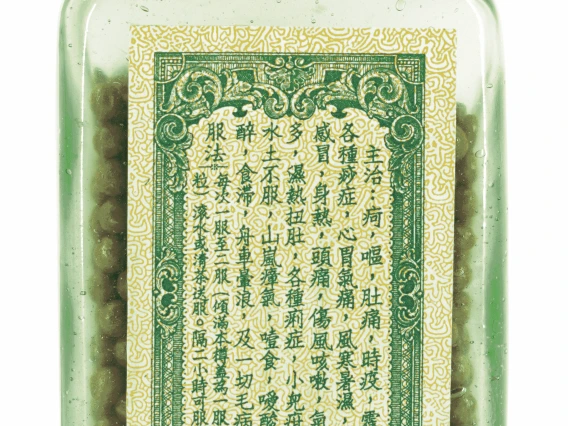 主治：疴，嘔，肚痛，時疫，霍
各種痧症，心胃氣痛，風寒暑濕，
感冒，身熱，頭痛，傷風咳嗽，氣
多，濕熱扭肚，各種痢症，小兒疳
水土不服，山嵐瘴氣，噎食，嘔酸
醉，食滯，舟車暈浪，及一切毛病
服法 每次一服至二服（傾滿本樽蓋為一服
粒）滾水或清茶送服。隔二小時可服